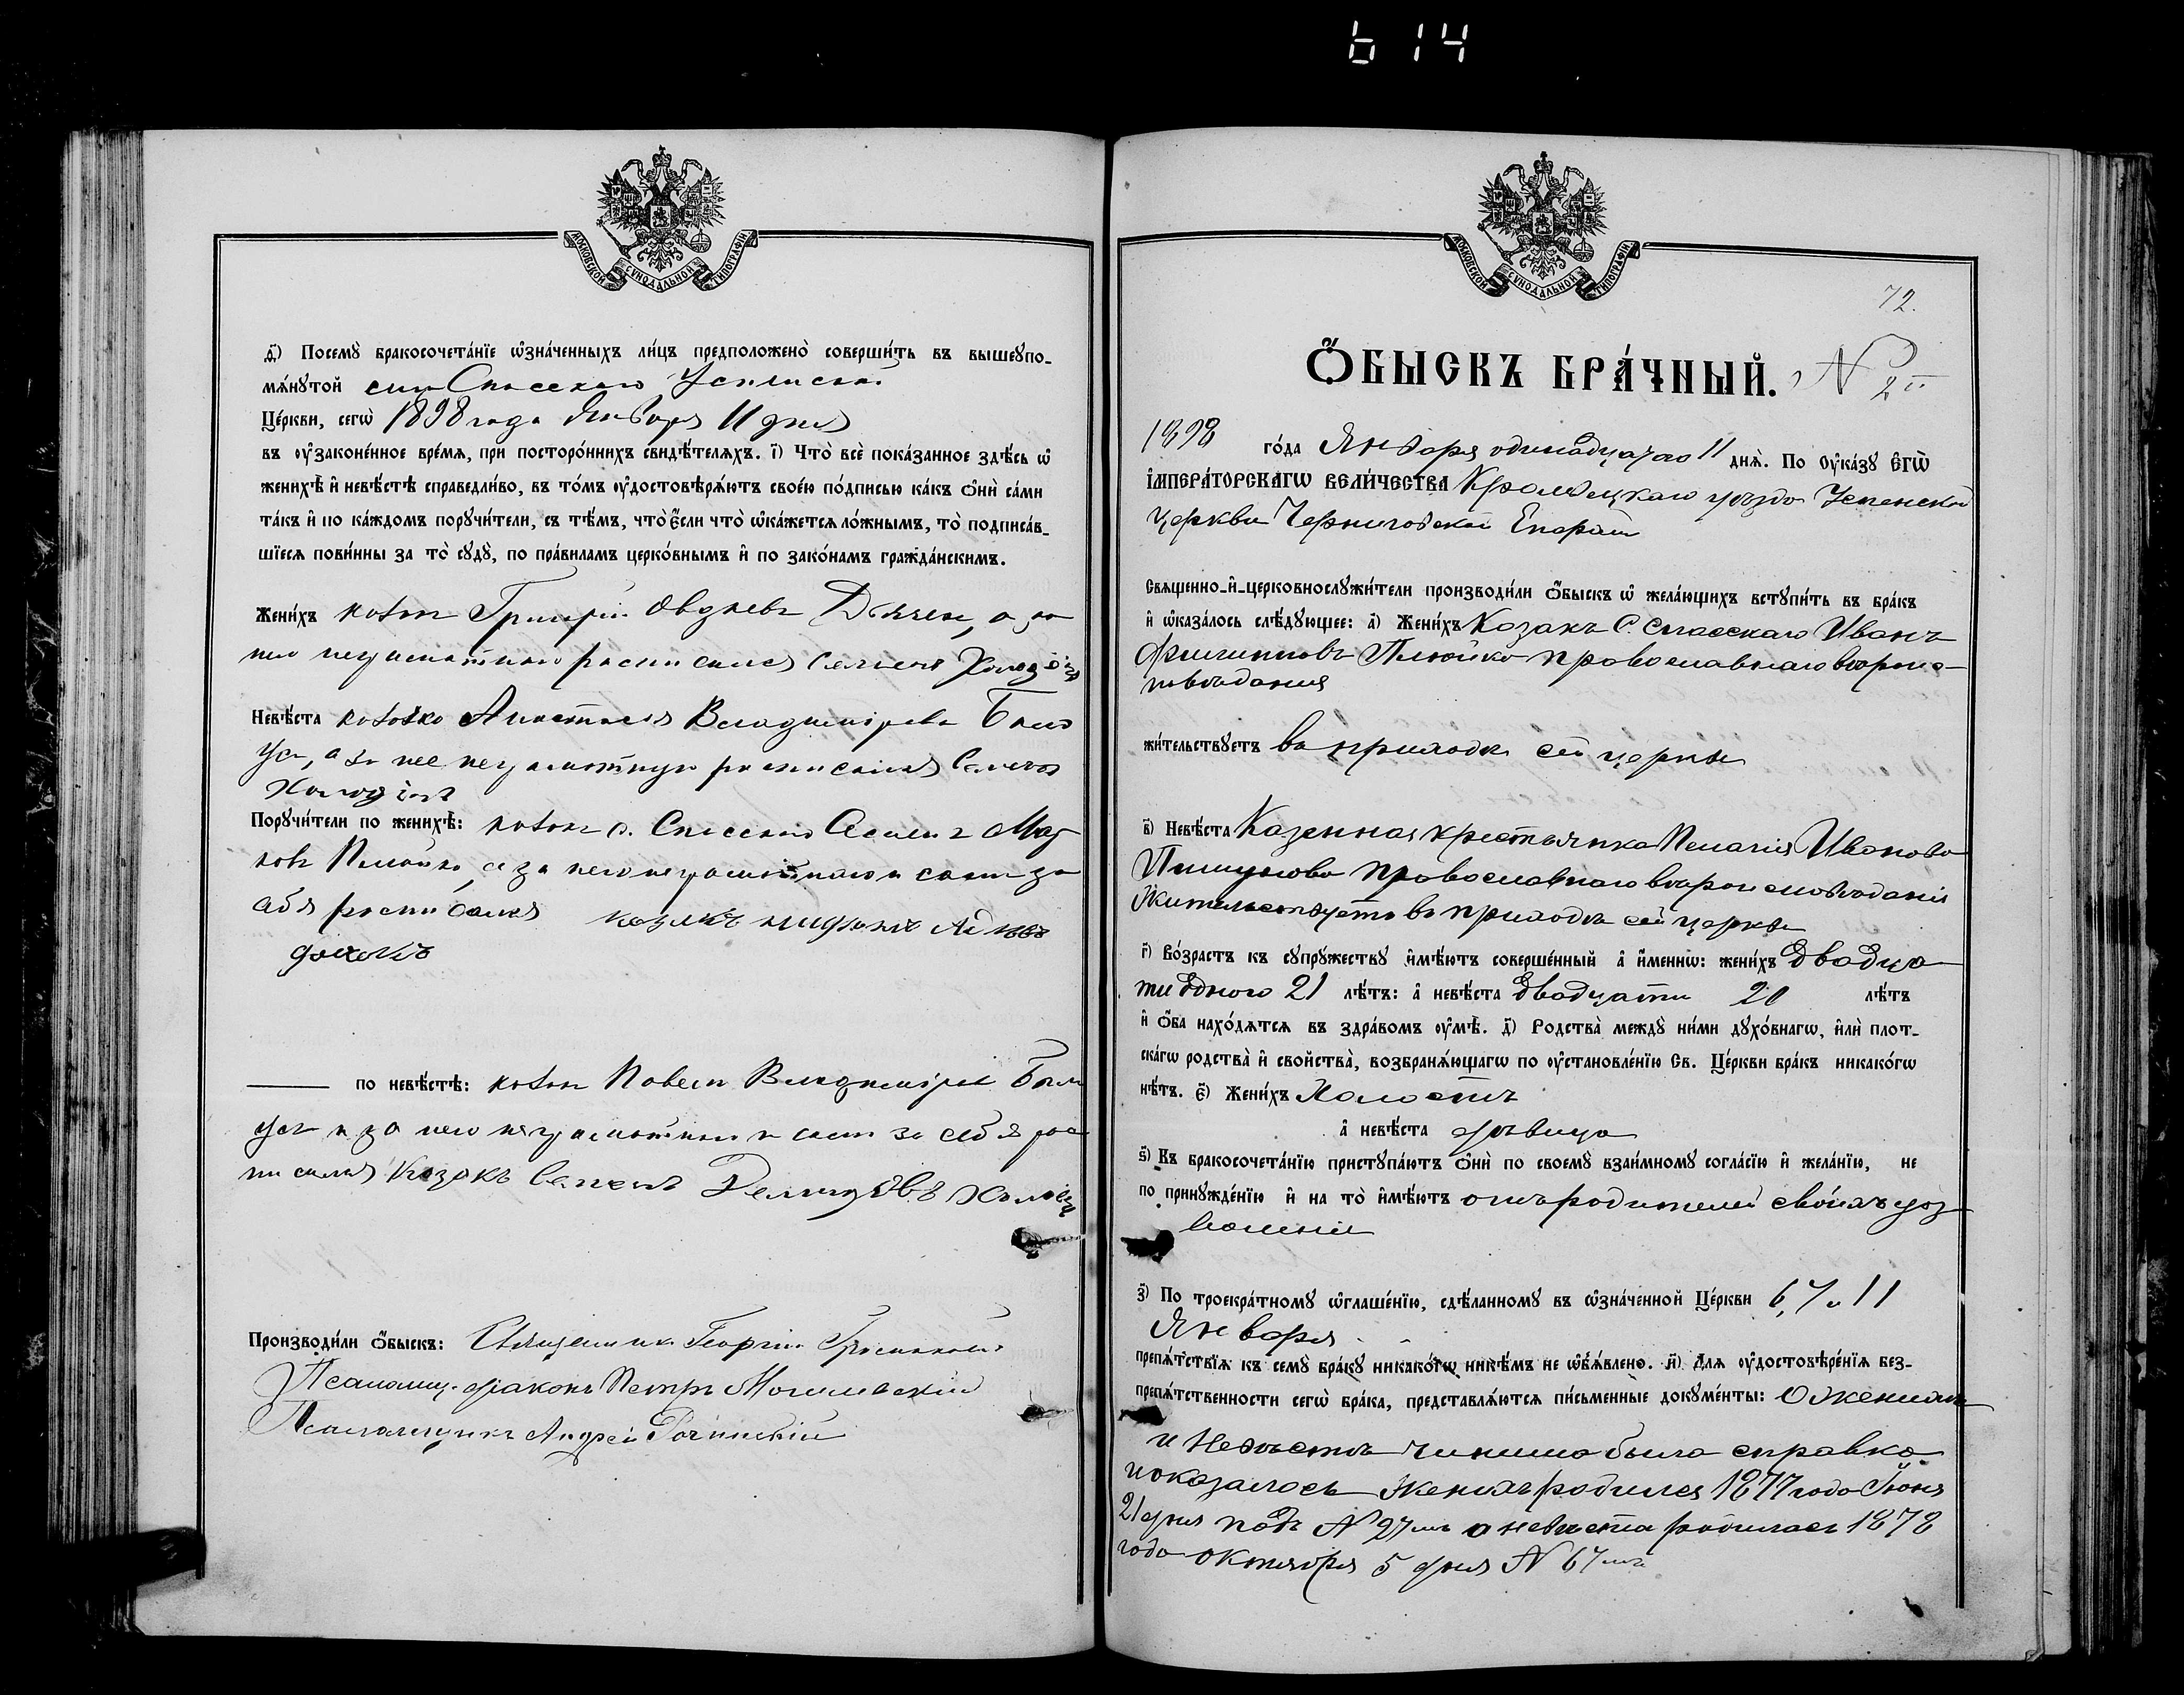 614
МОСКОВСКОЙ СУНОДАЛЬНОЙ ТИПОГРАФІИ
д҃і) Посемꙋ̀ бракосочета́нїе ѡ҆зна́ченныхъ ли́цъ предположено̀ соверши́ть въ вышеꙋпо-
мѧ́нꙋтой села Спасскаго Успенской
Це́ркви, сегѡ̀ 1898 года Января 11 дня
въ ᲂу҆законе́нное вре́мѧ, при посторо́ннихъ свидѣ́телѧхъ. і҃) Что̀ всѐ пока́занное здѣ́сь ѡ҆
женихѣ̀ и҆ невѣ́стѣ справедли́во, въ то́мъ ᲂу҆достовѣрѧ́ютъ свое́ю по́дписью ка́къ ѻ҆нѝ са́ми
та́къ и҆ по ка́ждомъ порꙋчи́тели, съ тѣ́мъ, что̀ є҆́сли что̀ ѡ҆ка́жетсѧ ло́жнымъ, то̀ подписа́в-
шїесѧ пови́нны за то̀ сꙋдꙋ̀, по пра́виламъ церко́внымъ и҆ по зако́намъ гражда́нскимъ.
Жени́хъ козакъ Григорій Овдѣевъ а за
него неграмотнаго росписался Семенъ
Невѣ́ста козачка Анастасія Владимірова
а за нее неграмотную росписался Семенъ
Порꙋчи́тели по женихѣ̀: козакъ с. Спасскаго Мар
ковъ Плюйко, а за него неграмотнаго и самъ за
себя росписался козакъ
по невѣ́стѣ: козакъ Павелъ Владиміровъ
и за него неграмотнаго и самъ за себя рос
писался Козакъ Семенъ Демидовъ
Производи́ли ѻ҆́быскъ: Священникъ Георгій
Псаломщ. діаконъ Петръ Могилевскій
Псаломщикъ Андрей
МОСКОВСКОЙ СУНОДАЛЬНОЙ ТИПОГРАФІИ
72.
Ѻ҆́БЫСКЪ БРА́ЧНЫЙ. N 2й
1898 го́да Января одинадцатаго 11 днѧ̀. По ᲂу҆ка́зꙋ Є҆ГѠ̀
І҆МПЕРА́ТОРСКАГѠ ВЕЛИ́ЧЕСТВА Кролевецкаго уѣзда Успенской
церкви Черниговской Епархіи
Свѧщенно-и҆-церковнослꙋжи́тели производи́ли ѻ҆́быскъ ѡ҆ жела́ющихъ встꙋпи́ть въ бра́къ
и҆ ѡ҆каза́лось слѣ́дꙋющее: а҃) Жени́хъ Козакъ С. Спасскаго Иванъ
Филипповъ Плюйко православнаго вѣроис-
повѣданія
жи́тельствꙋетъ въ приходѣ сей церкви
в҃) Невѣ́ста Казенная крестьянка Пелагія Иванова
православнаго вѣроисповѣданія
Жительствуетъ въ приходѣ сей церкви
г҃) Во́зрастъ къ сꙋпрꙋ́жествꙋ и҆мѣ́ютъ соверше́нный а҆ и҆́меннѡ: жени́хъ двадца
ти одного 21 лѣ́тъ: а҆ невѣ́ста двадцати 20 лѣ́тъ
и҆ ѻ҆́ба нахо́дѧтсѧ въ здра́вомъ ᲂу҆мѣ̀. д҃) Родства̀ междꙋ̀ ни́ми дꙋхо́внагѡ, и҆лѝ плот-
ска́гѡ родства̀ и҆ сво́йства̀, возбранѧ́ющагѡ по ᲂу҆становле́нїю Св. Це́ркви бра́къ никако́гѡ
нѣ́тъ. є҃) Жени́хъ Холостъ
а҆ невѣ́ста дѣвица
ѕ҃) Къ бракосочета́нїю пристꙋпа́ютъ ѻ҆нѝ по своемꙋ̀ взаи́мномꙋ согла́сїю и҆ жела́нїю, не
по принꙋжде́нїю и҆ на то̀ и҆мѣ́ютъ отъ родителей своихъ доз
воленіе
з҃) По троекра́тномꙋ ѡ҆глаше́нїю, сдѣ́ланномꙋ въ ѡ҆зна́ченной Це́ркви 6, 7 и 11
Января
препѧ́тствїѧ къ семꙋ̀ бра́кꙋ никако́гѡ никѣ́мъ не ѡ҆б̾ѧ́влено. и҃) Длѧ ᲂу҆достовѣре́нїѧ без-
препѧ́тственности сегѡ̀ бра́ка, представлѧ́ютсѧ пи́сьменные докꙋме́нты: О женихѣ
и Невѣстѣ чинима была справка
и оказалось Женихъ родился 1877 года Іюня
21 дня подъ N 27мъ а невѣста родилась 1878
года Октября 5 дня N 67мъ